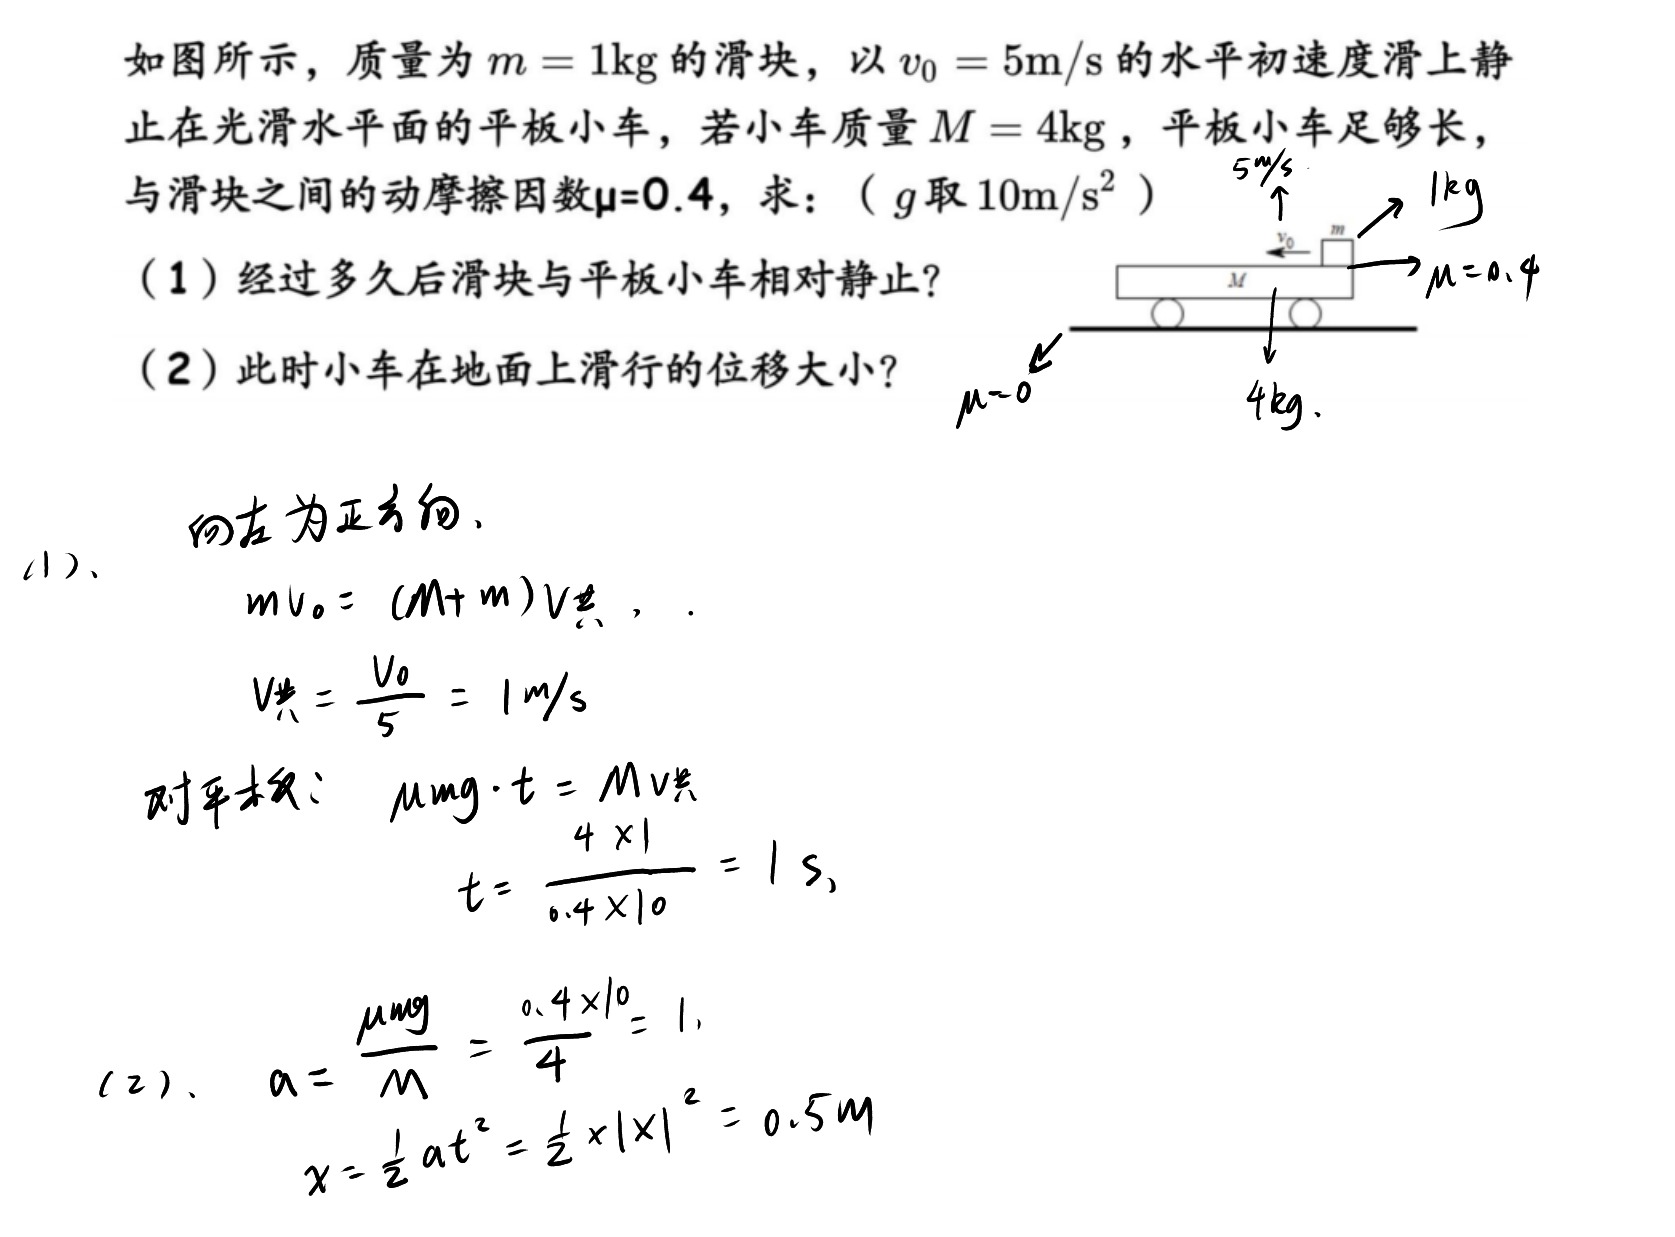 如图所示，质量为 m = 1kg 的滑块，以 v₀ = 5m/s 的水平初速度滑上静
止在光滑水平面的平板小车，若小车质量 M = 4kg ，平板小车足够长，
与滑块之间的动摩擦因数μ=0.4，求：（ g 取 10m/s² ）
（1）经过多久后滑块与平板小车相对静止？
（2）此时小车在地面上滑行的位移大小？
5m/s
1kg
v₀
m
M
μ=0.4
μ=0
4kg.
向左为正方向、
(1)、
mv₀ = (M+m)v共，.
v共 = v₀/5 = 1m/s
对平板： μmg·t = Mv共
t = 4×1/0.4×10 = 1s、
(2)、 a = μmg/M = 0.4×10/4 = 1.
x = 1/2 at² = 1/2 ×1×1² = 0.5m